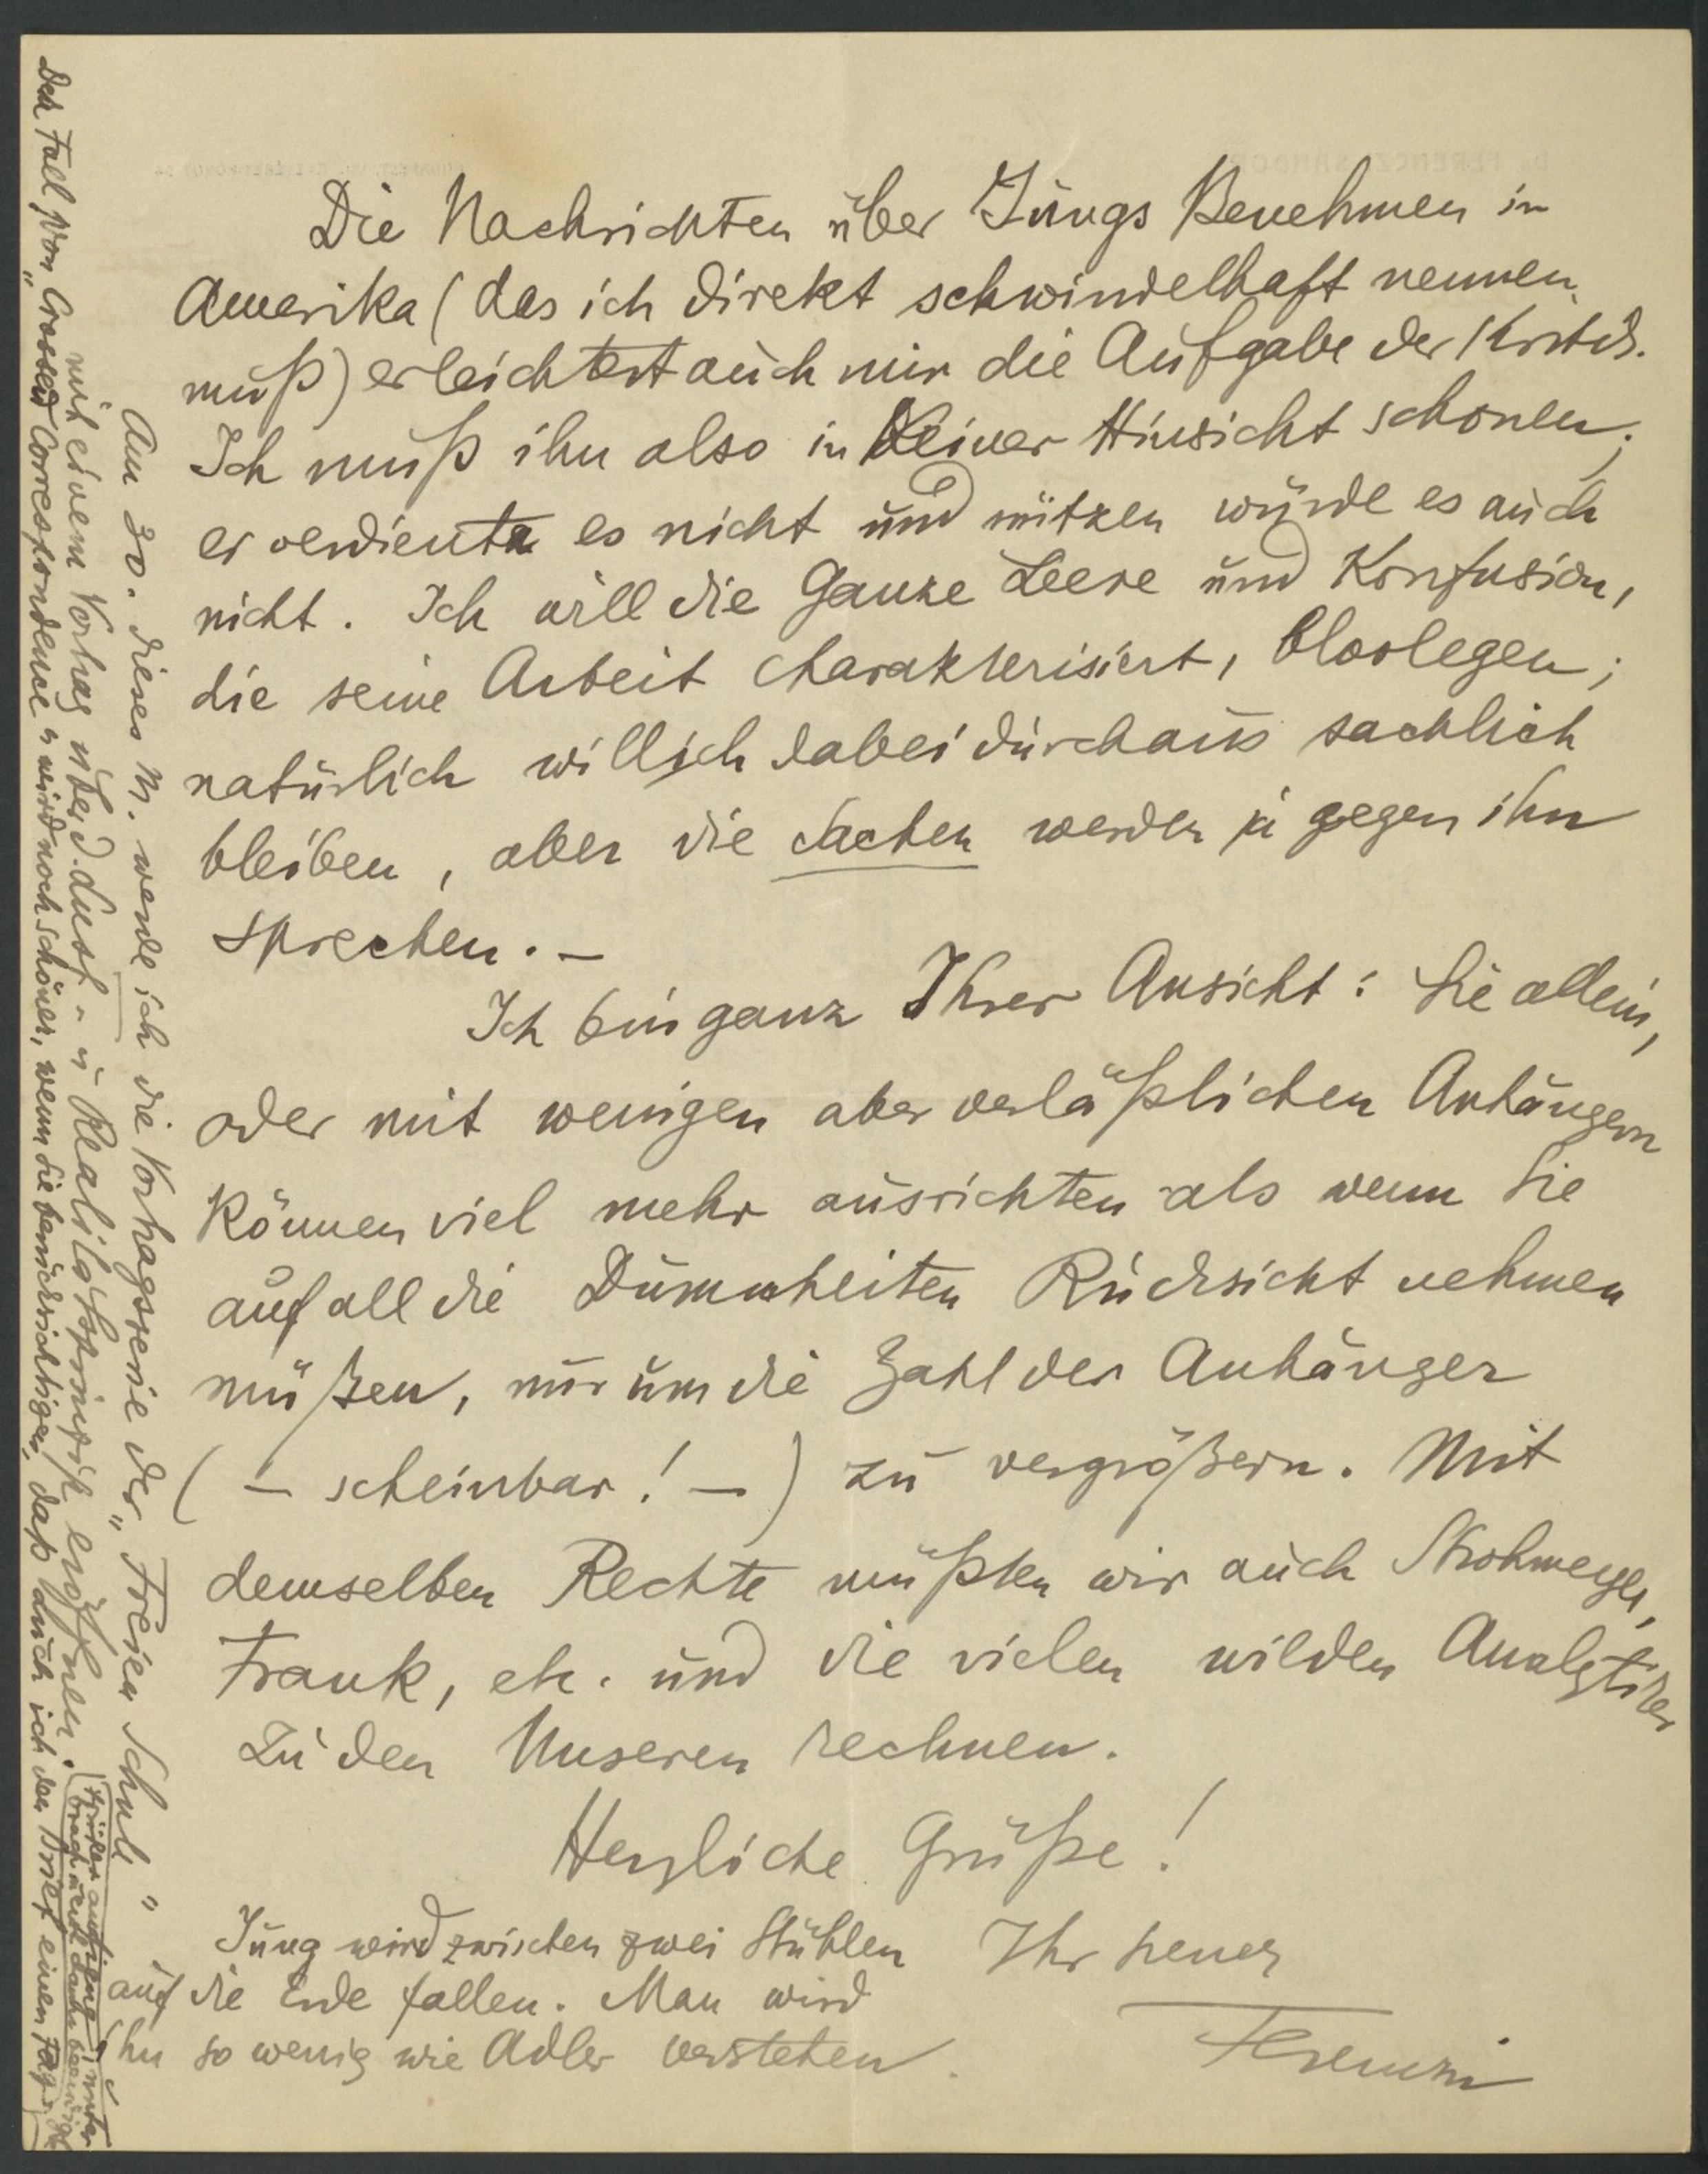 Die Nachrichten über Jungs Benehmen in
Amerika (das ich direkt schwindelhaft nennen
muß) erleichtert auch mir die Aufgabe der Kritik.
Ich muß ihn also in keiner Hinsicht schonen;
er verdiente es nicht und nützen würde es auch
nicht. Ich will die Ganze Leere und Konfusion,
die seine Arbeit charakterisiert, bloslegen;
natürlich will ich dabei durchaus sachlich
bleiben, aber die Sachen werden ja gegen ihn
sprechen. –
Ich bin ganz Ihrer Ansicht: Sie allein,
oder mit wenigen aber verläßlichen Anhängern
können viel mehr ausrichten als wenn Sie
auf all die Dummheiten Rücksicht nehmen
müßen, nur um die Zahl der Anhänger
(– scheinbar! –) zu vergrößern. Mit
demselben Rechte müßten wir auch Strohmeyer,
Frank, etc. und die vielen wilden Analytiker
zu den Unseren rechnen.
Herzliche Grüße!
Ihr treuer
Ferenczi
Jung wird zwischen zwei Stühlen
auf die Erde fallen. Man wird
ihn so wenig wie Adler verstehen.
Am 30. dieses M. werde ich die Vortragsserie der „Freien Schule"
mit einem Vortrag über d. Lust- u Realitätsprinzip eröffnen.
Der Fall von „Crossed Correspondence" wird noch schöner, wenn Sie berücksichtigen, daß auch ich den Brief einen Tag
früher anfieng u